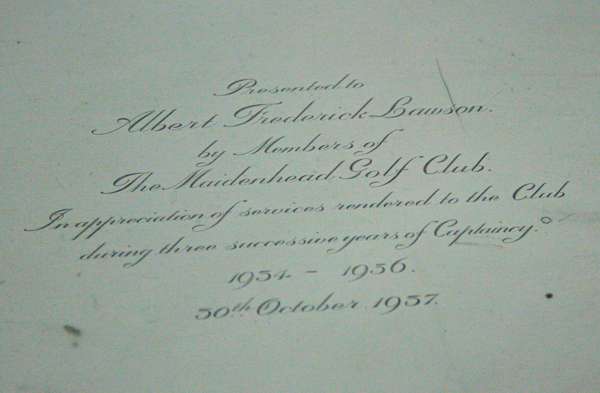 Presented to
Albert Frederick Lawson.
by Members of
The Maidenhead Golf Club.
In appreciation of services rendered to the Club
during three successive years of Captaincy.
1934 - 1936.
30th October 1937.